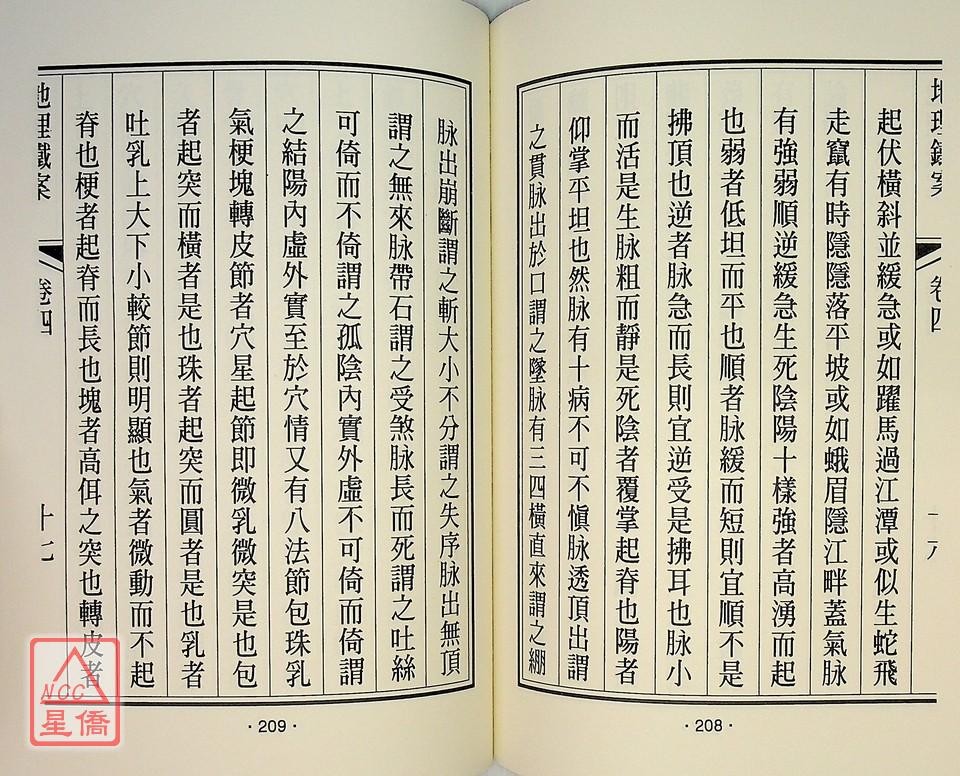 地理鐵案
卷四
起伏橫斜並緩急或如躍馬過江潭或似生蛇飛
走竄有時隱隱落平坡或如蛾眉隱江畔蓋氣脉
有強弱順逆緩急生死陰陽十樣強者高湧而起
也弱者低坦而平也順者脉緩而短則宜順不是
拂頂也逆者脉急而長則宜逆受是拂耳也脉小
而活是生脉粗而靜是死陰者覆掌起脊也陽者
仰掌平坦也然脉有十病不可不愼脉透頂出謂
之貫脉出於口謂之墜脉有三四橫直來謂之綳
·208·
脉出崩斷謂之斬大小不分謂之失序脉出無頂
謂之無來脉帶石謂之受煞脉長而死謂之吐絲
可倚而不倚謂之孤陰內實外虛不可倚而倚謂
之結陽內虛外實至於穴情又有八法節包珠乳
氣梗塊轉皮節者穴星起節即微乳微突是也包
者起突而橫者是也珠者起突而圓者是也乳者
吐乳上大下小較節則明顯也氣者微動而不起
脊也梗者起脊而長也塊者高佴之突也轉皮者
地理鐵案
卷四
十七
·209·
NCC
星僑